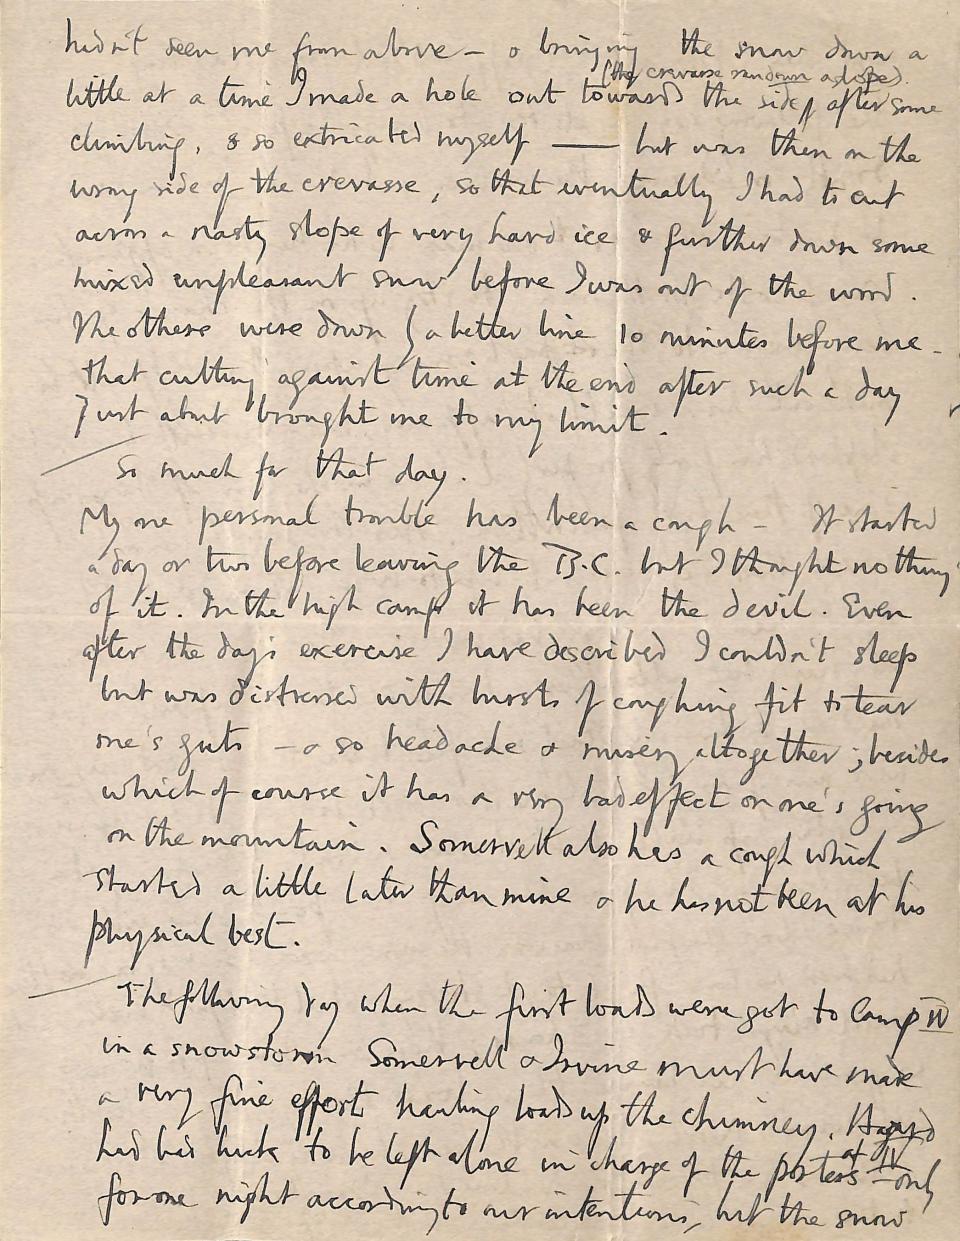 hadn't seen me from above – & bringing the snow down a
(the crevasse ran down a slope).
little at a time I made a hole out towards the side, after some
climbing, & so extricated myself —— but was then on the
wrong side of the crevasse, so that eventually I had to cut
across a nasty slope of very hard ice & further down some
mixed unpleasant snow before I was out of the wood.
The others were down (a better line 10 minutes before me –
that cutting against time at the end after such a day
just about brought me to my limit.
So much for that day.
My one personal trouble has been a cough – It started
a day or two before leaving the B.C. but I thought nothing
of it. In the high camp it has been the devil. Even
after the day's exercise I have described I couldn't sleep
but was distressed with bursts of coughing fit to tear
one's guts – & so headache & misery altogether; besides
which of course it has a very bad effect on one's going
on the mountain. Somervell also has a cough which
started a little later than mine & he has not been at his
physical best.
The following day when the first loads were got to Camp IV
in a snowstorm Somervell & Irvine must have made
a very fine effort hauling loads up the chimney. Hazard
had bad luck to be left alone in charge of the porters at IV – only
for one night according to our intentions, but the snow